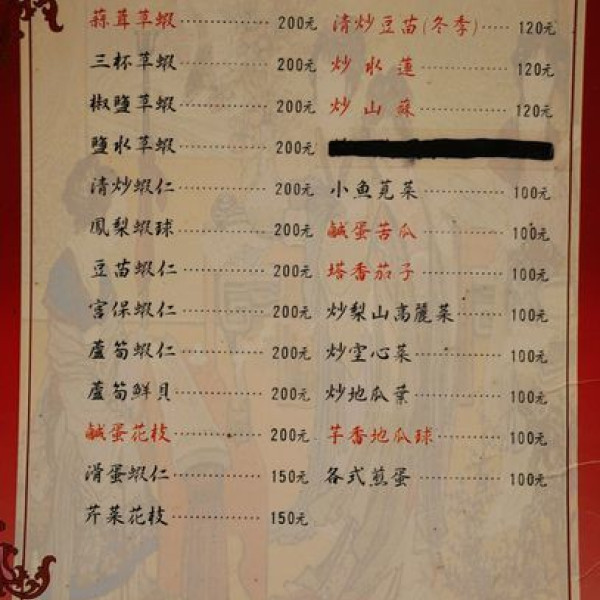 蒜茸草蝦 200元
三杯草蝦 200元
椒鹽草蝦 200元
鹽水草蝦 200元
清炒蝦仁 200元
鳳梨蝦球 200元
豆苗蝦仁 200元
宮保蝦仁 200元
蘆筍蝦仁 200元
蘆筍鮮貝 200元
鹹蛋花枝 200元
滑蛋蝦仁 150元
芹菜花枝 150元
清炒豆苗(冬季) 120元
炒水蓮 120元
炒山蘇 120元
小魚莧菜 100元
鹹蛋苦瓜 100元
塔香茄子 100元
炒梨山高麗菜 100元
炒空心菜 100元
炒地瓜葉 100元
芋香地瓜球 100元
各式煎蛋 100元